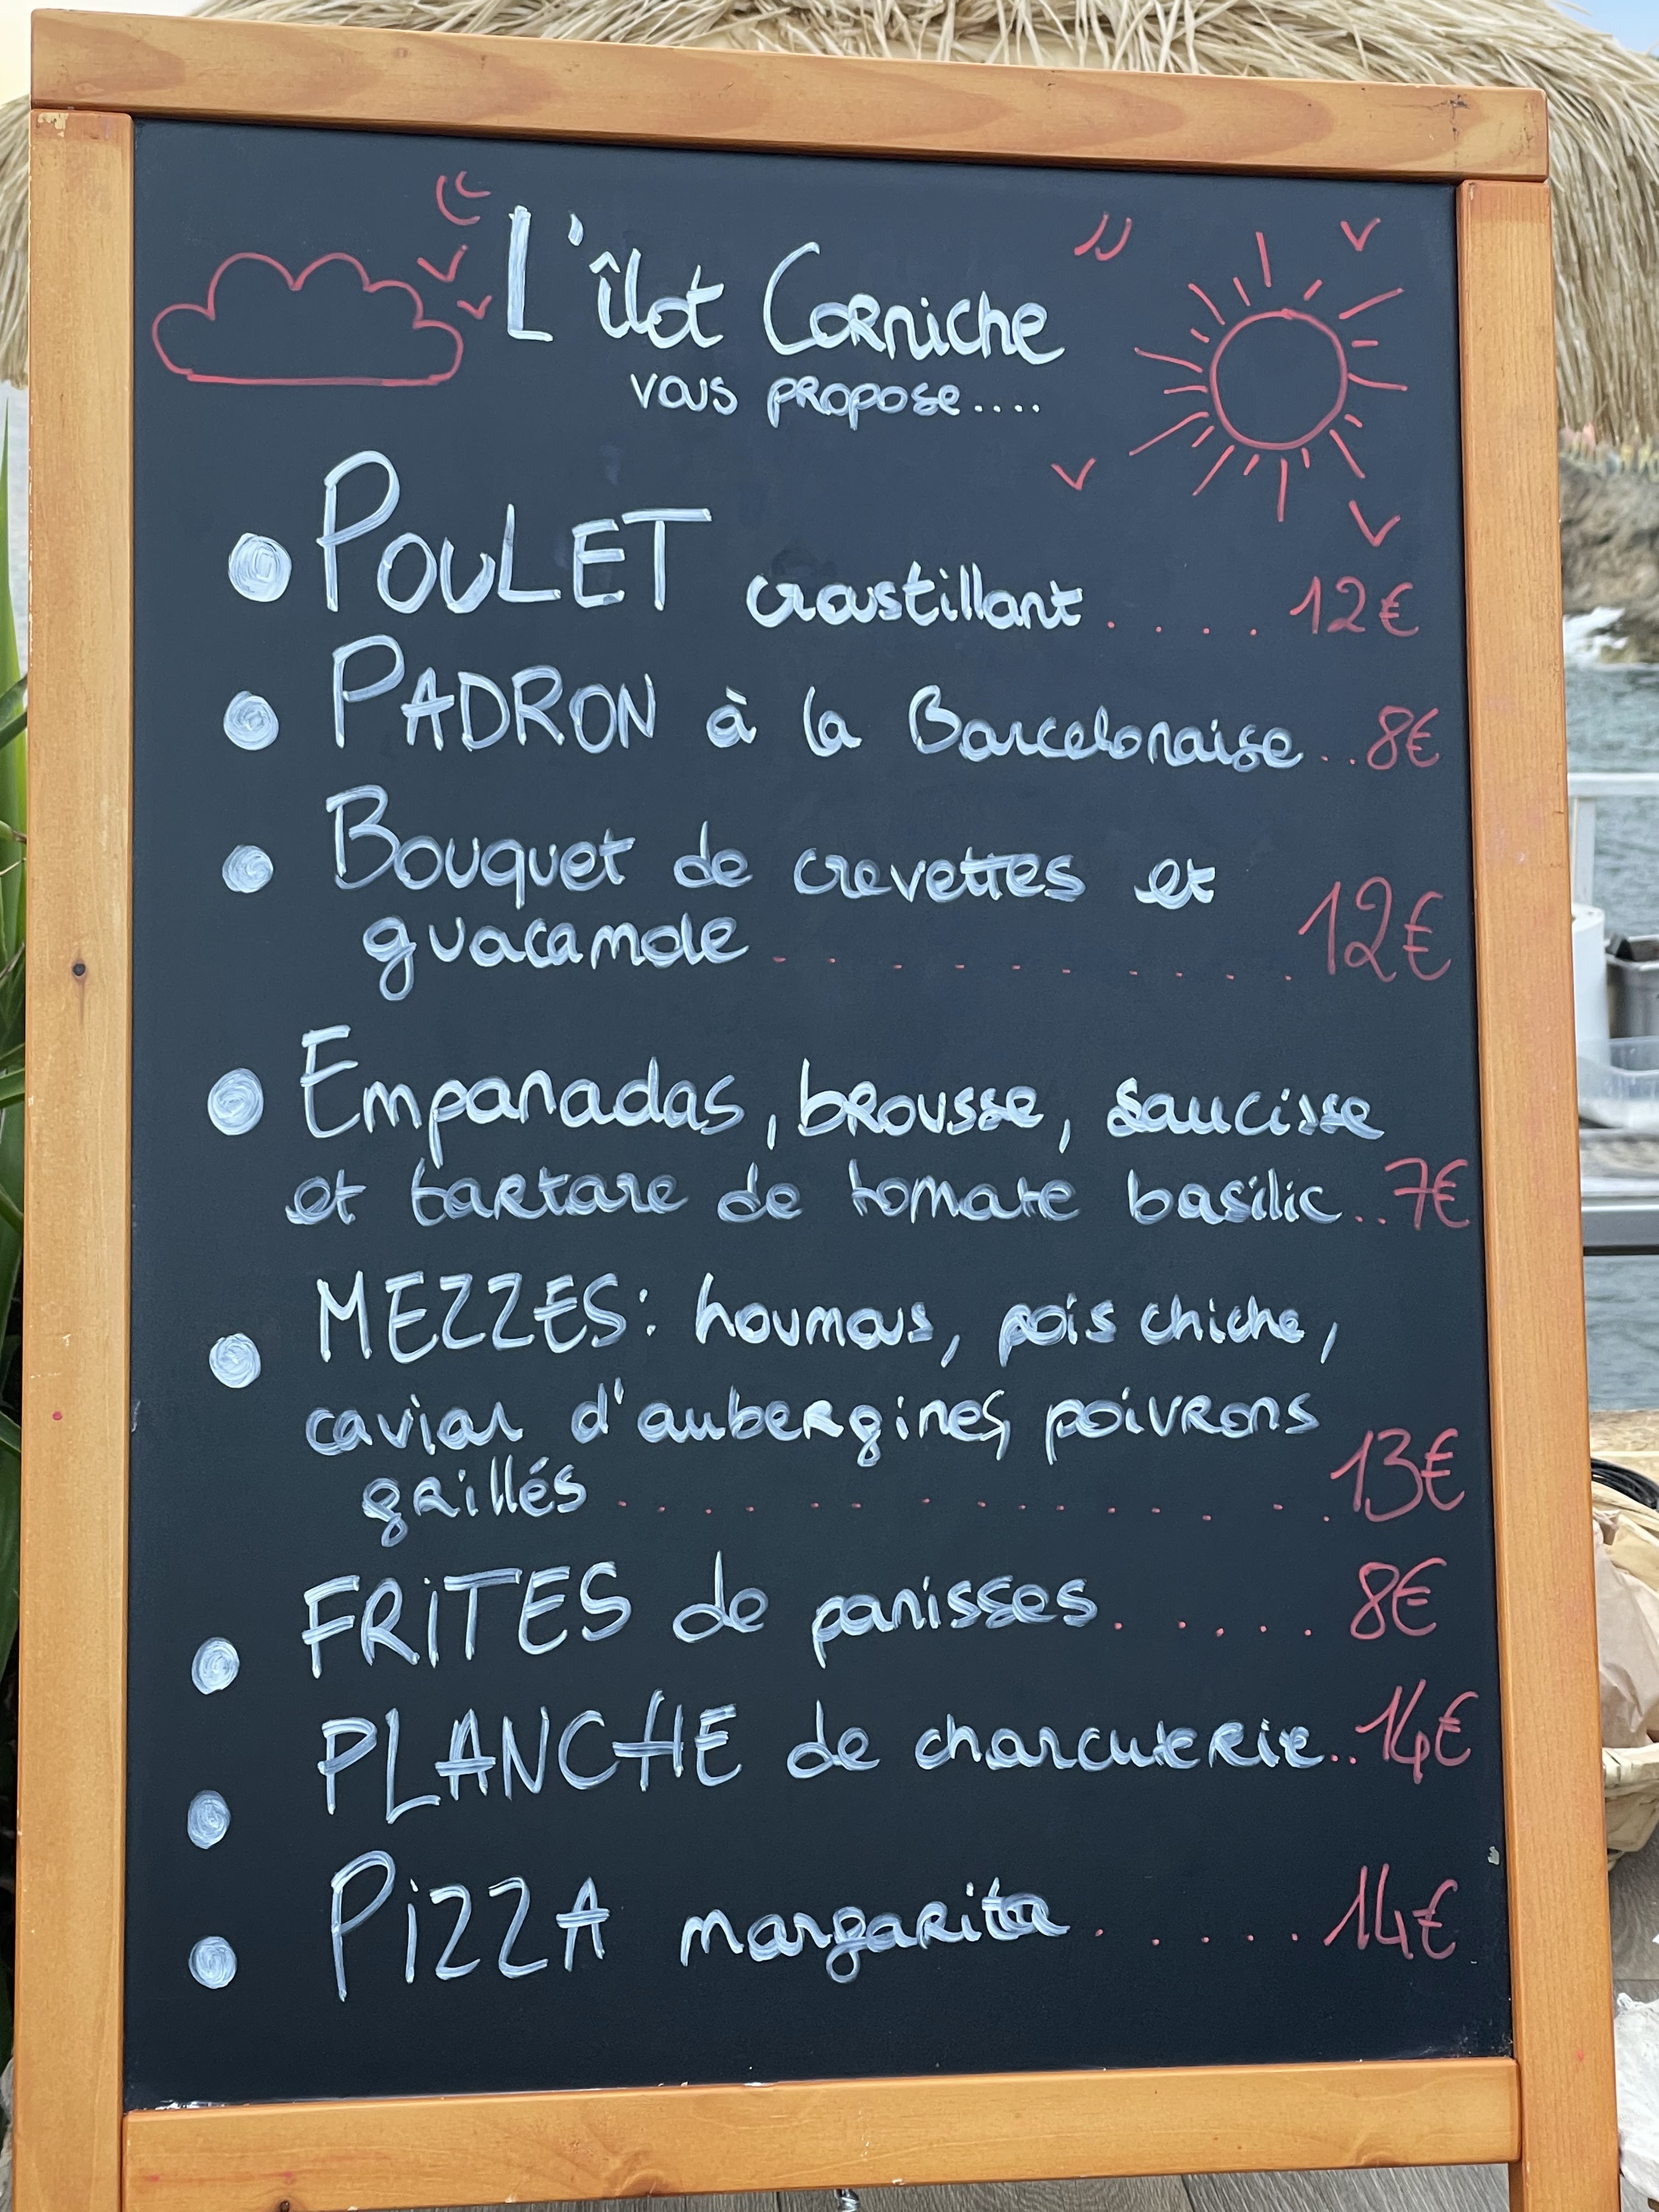 L'îlot Corniche
vous propose....
• POULET croustillant.... 12€
• PADRON à la Barcelonaise.. 8€
• Bouquet de crevettes et
guacamole............ 12€
• Empanadas, brousse, saucisse
et tartare de tomate basilic.. 7€
• MEZZES: houmous, pois chiche,
caviar d'aubergines, poivrons
grillés............. 13€
• FRITES de panisses..... 8€
• PLANCHE de charcuterie.. 14€
• PIZZA margarita..... 14€